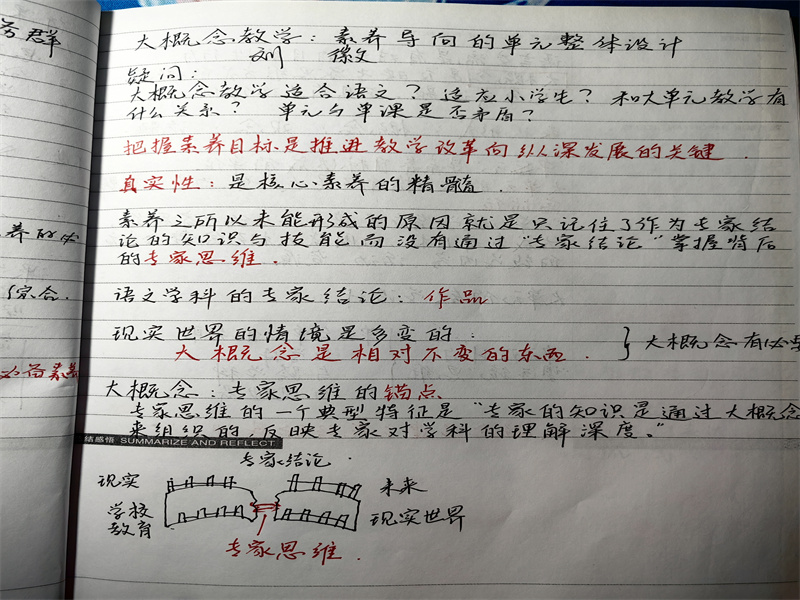 务群
养的必
综合.
必备素养
大概念教学：素养导向的单元整体设计
刘 徽文
疑问：
大概念教学适合语文？适应小学生？和大单元教学有
什么关系？ 单元与单课是否矛盾？
把握素养目标是推进教学改革向纵深发展的关键.
真实性：是核心素养的精髓.
素养之所以未能形成的原因就是只记住了作为专家结
论的知识与技能而没有通过“专家结论”掌握背后
的专家思维.
语文学科的专家结论：作品
现实世界的情境是多变的：
大概念是相对不变的东西. } 大概念有必要
大概念：专家思维的锚点
专家思维的一个典型特征是“专家的知识是通过大概念
来组织的,反映专家对学科的理解深度。”
结感悟 SUMMARIZE AND REFLECT
专家结论.
现实 未来
学校 现实世界
教育
专家思维.